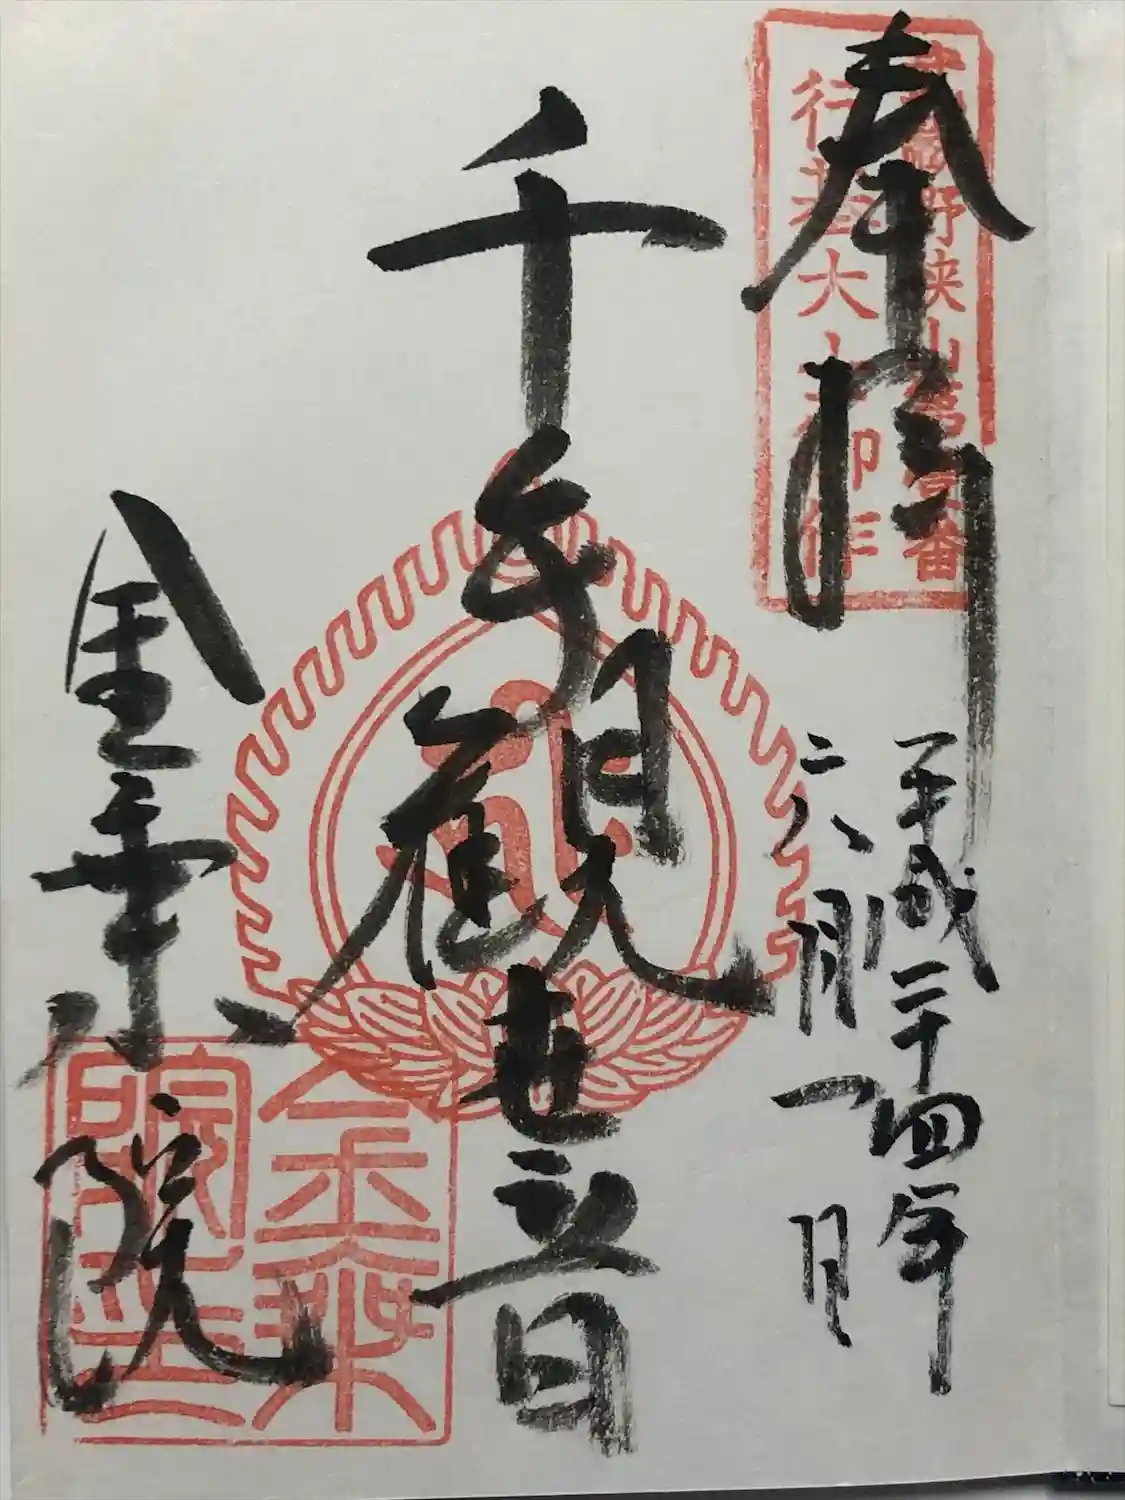 奉拝
武蔵野狭山第壹番
行基大士御作
平成二十四年
六月一日
千手観世音
金乗院
金乗
院印